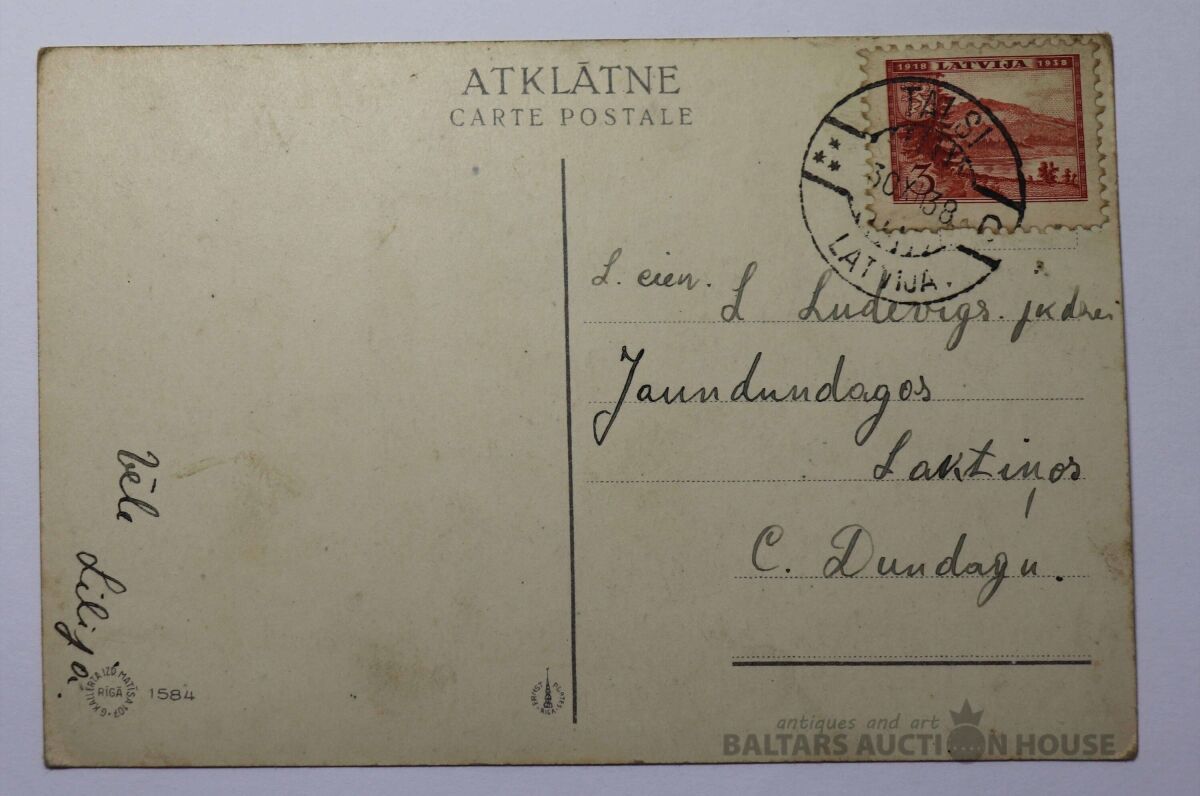 ATKLĀTNE
CARTE POSTALE
1918 LATVIJA 1938
3
TALSI
30 XI 38
LATVIJA
L. cien.
L Ludevigs. jkdzei
Jaundundagos
Laktiņos
C. Dundagu.
Vēl
Lilija.
G. KALLERTA IZD. MATĪSA 107
RĪGĀ
1584
ERNST
antiques and art
BALTARS AUCTION HOUSE